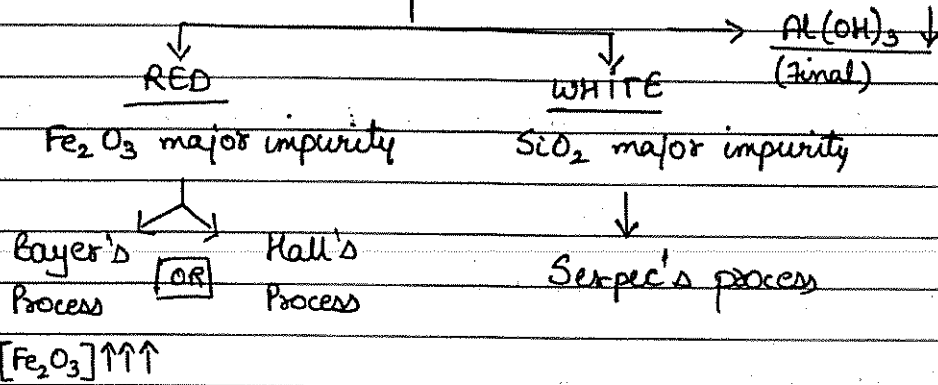 Al(OH)₃ ↓
(Final)
RED
WHITE
Fe₂O₃ major impurity
SiO₂ major impurity
Bayer's Process
OR
Hall's Process
Serpec's process
[Fe₂O₃]↑↑↑